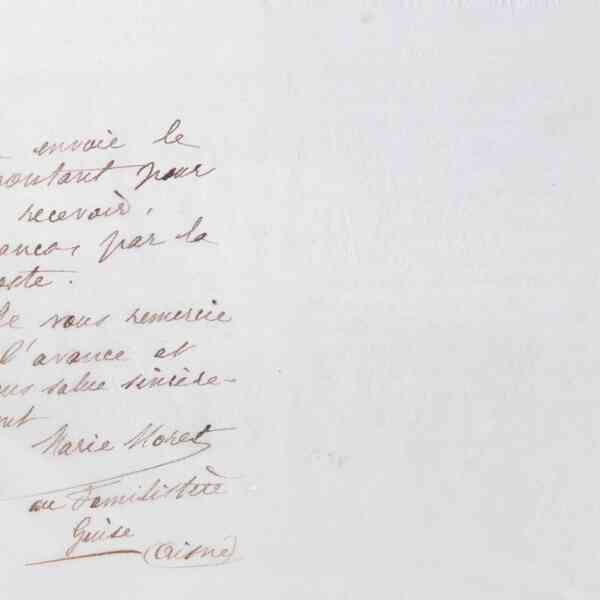 envoie le
montant pour
recevoir,
francos par la
poste.
Je vous remercie
l'avance et
vous salue sincère-
ment
Marie Moret
au Familistère
Guise
(Aisne)